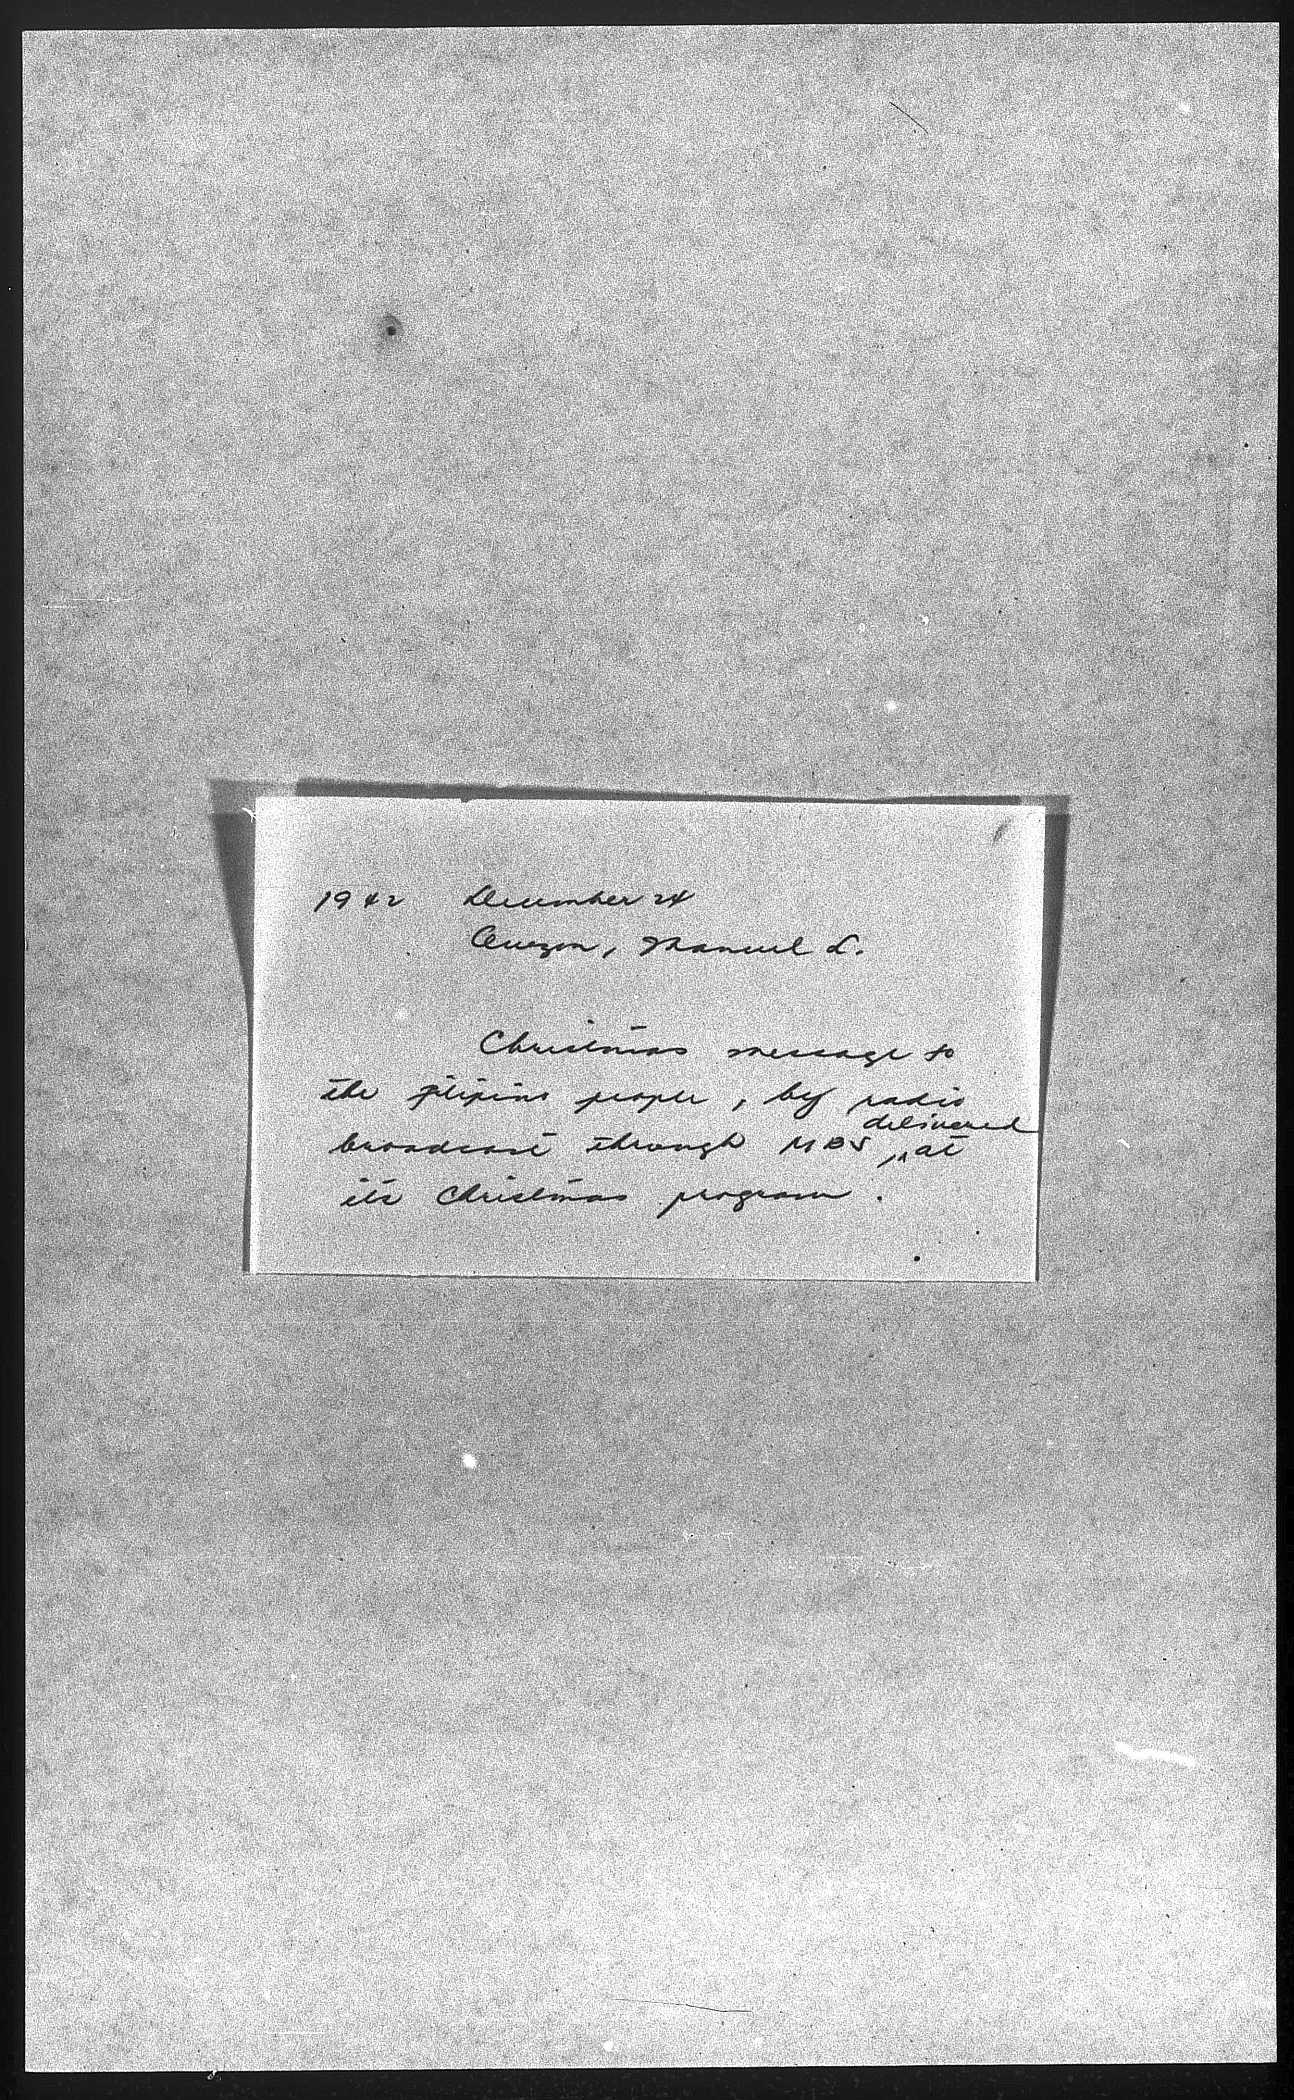 1942 December 24
Quezon, Manuel L.
Christmas message to
the Filipino people, by radio
delivered
broadcast through MBS, ^ at
its Christmas program.